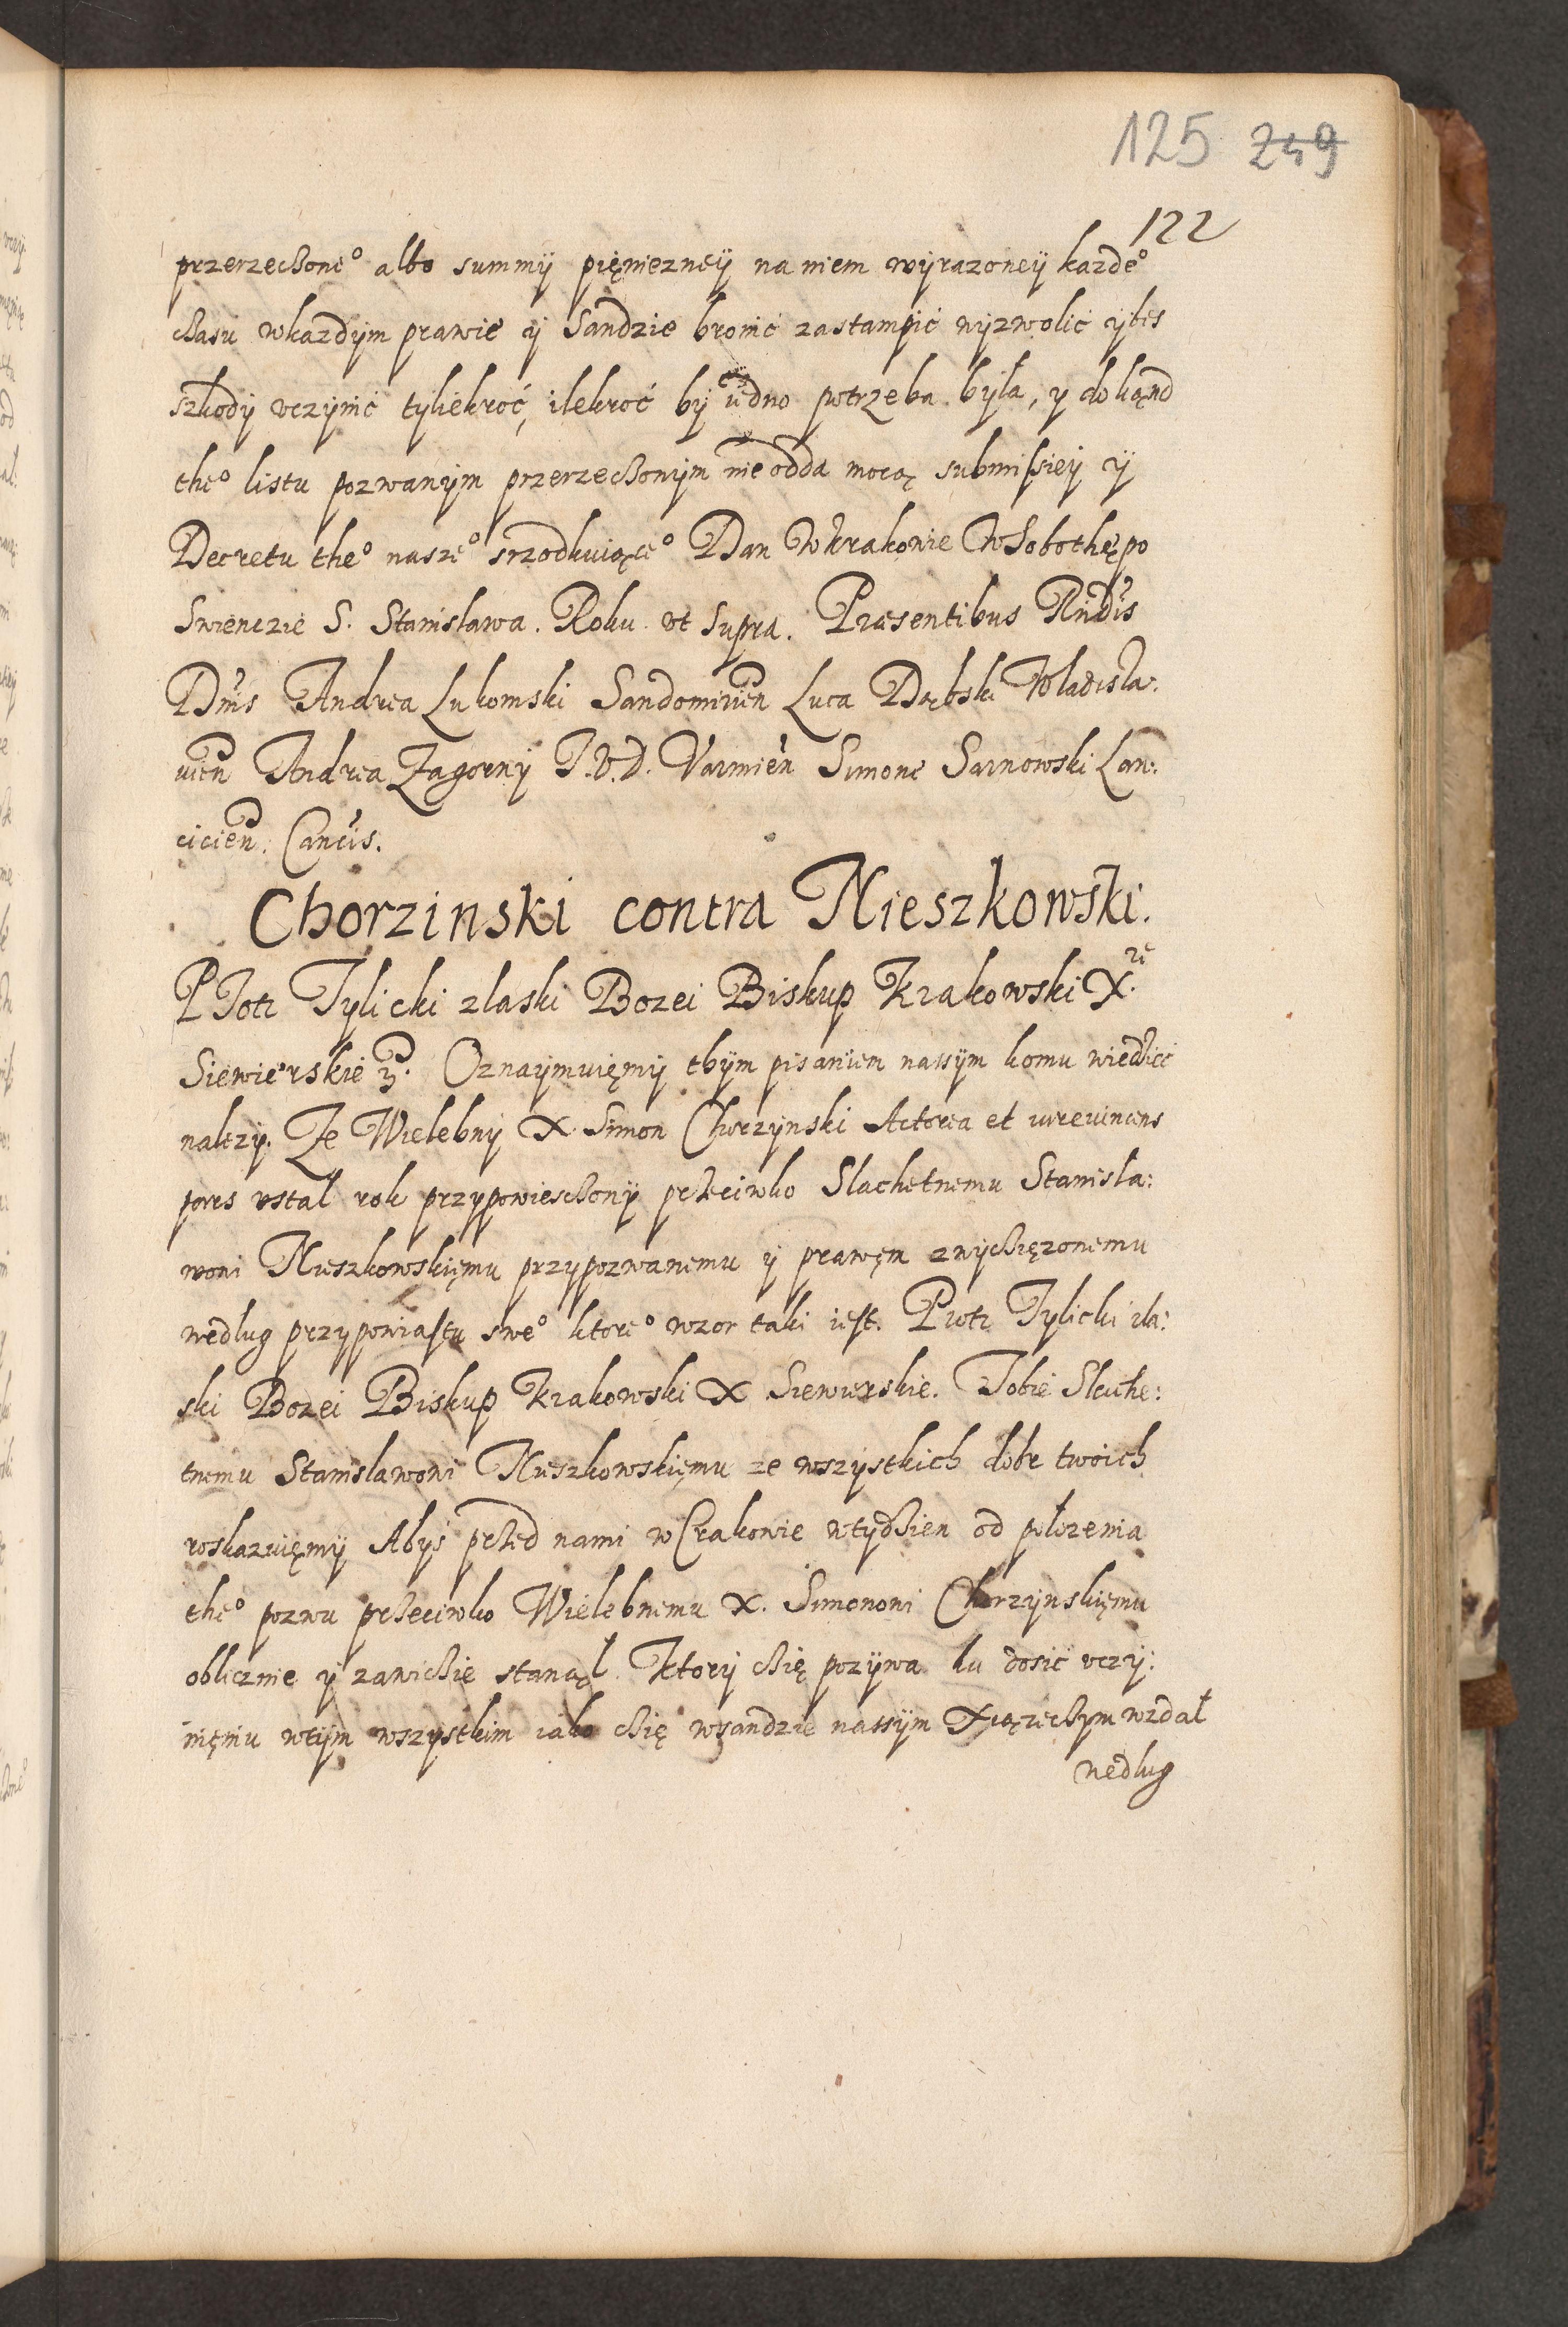 125 249
122
przerzeczone° albo summÿ pięnieznęÿ na niem wÿrazonęÿ kazde°
czasu wkazdÿm prawie ÿ Sandzie bronić zastampić wÿzwolić ÿ bes
szkodÿ vczÿnić tyliekroć, ilekroć bÿ iedno potrzeba byla, y dokąnd
the° listu pozwanÿm przerzeczonÿm nieodda mocą submissieÿ ÿ
Decretu the° nasze° srzodkuiące° Dan W krakowie W Sobothę po
Swienczie S. Stanislawa. Roku vt supra. Præsentibus Rndis
Dnis Andrea Lukomski Sandomirien Luca Dębski Wladisla:
uien Andrea Zagorny J.V.D. Varmien Simone Sarnowski Lan:
cicien. Cancis.
Chorzinski contra Nieszkowski.
PJotr Tylicki zlaski Bozei Biskup Krakowski X.
Siewierskie Oznaÿmuięmÿ thÿm pisaniem nassÿm komu wiedzieć
nalezy. Ze Wielebny X. Simon Chorzynski Actorea et iurevincens
pars vstal rok przypowieszczonÿ przeciwko Slachetnemu Stanisla:
wowi Nieszkowskięmu przypozwanemu ÿ prawęm zwÿcziężonemu
wedlug przypowiastu swe° ktore° wzor taki iest. Piotr Tylicki zla:
ski Bozei Biskup Krakowski X Siewierskie. Tobie Slache:
tnemu Stanislawowi Nieszkowskięmu ze wszystkich dobr twoich
roskazuięmÿ Abyś przed nami w Crakowie wtydzien od polozenia
the° pozwu przeciwko Wielebnemu X. Simonowi Chorzynskięmu
oblicznie ÿ zawicie stanął. Ktorÿ czię pozÿwa ku dosić vczÿ:
nięniu wtÿm wszystkim iako czię wsandzie nassÿm Xiązęczym wzdal
wedlug